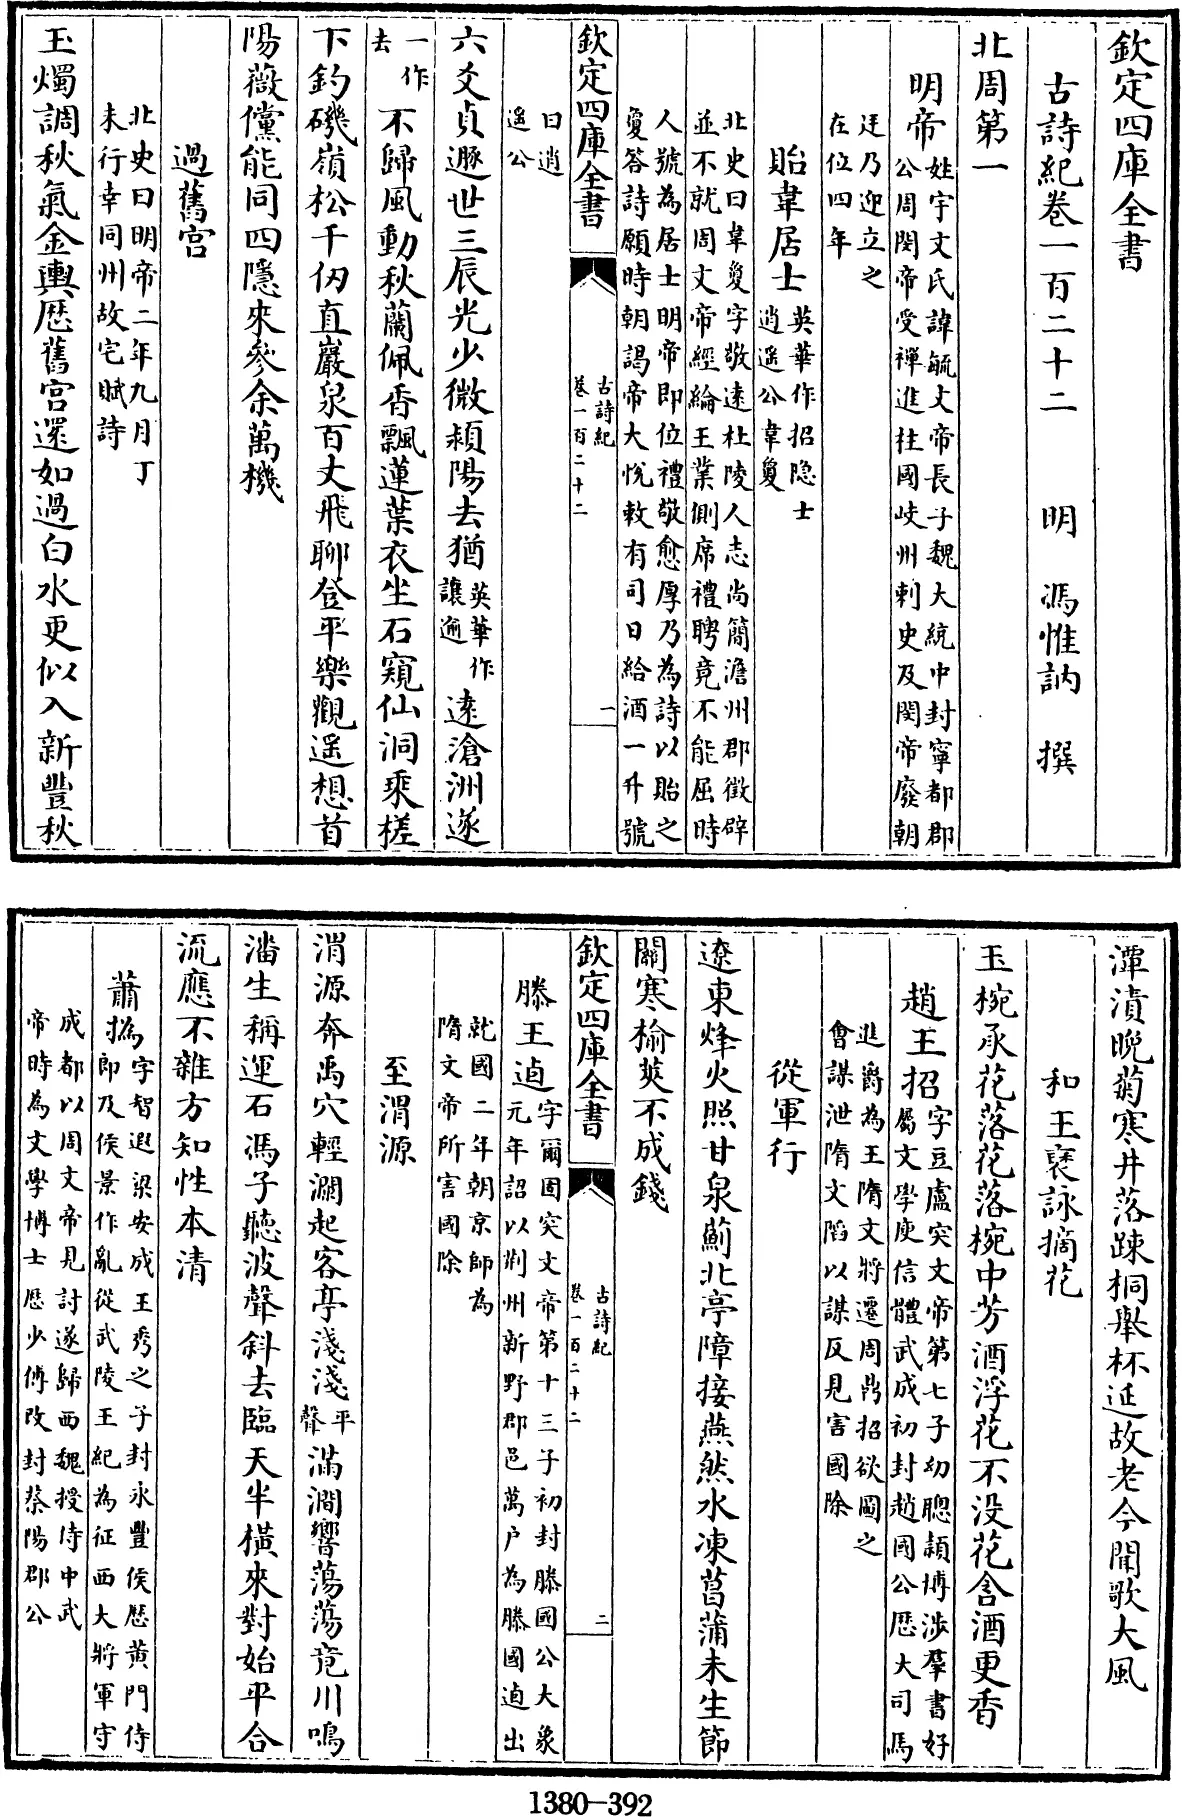 欽定四庫全書
古詩紀卷一百二十二 明 馮惟訥 撰
北周第一
明帝姓宇文氏諱毓文帝長子魏大統中封寧都郡
公周閔帝受禪進柱國岐州刺史及閔帝廢朝
廷乃迎立之
在位四年
貽韋居士英華作招隐士
逍遥公韋敻
北史曰韋敻字敬遠杜陵人志尚簡澹州郡徵辟
並不就周文帝經綸王業側席禮聘竟不能屈時
人號為居士明帝即位禮敬愈厚乃為詩以貽之
敻答詩願時朝謁帝大悅敕有司日給酒一升號
欽定四庫全書
古詩紀
卷一百二十二
一
曰逍
遥公
六爻貞遯世三辰光少微潁陽去猶英華作
讓逾遠滄洲遂
一作
去不歸風動秋蘭佩香飄蓮葉衣坐石窺仙洞乘槎
下釣磯嶺松千仞直巖泉百丈飛聊登平樂觀遥想首
陽薇儻能同四隱來參余萬機
過舊宫
北史曰明帝二年九月丁
未行幸同州故宅賦詩
玉燭調秋氣金輿歴舊宫還如過白水更似入新豐秋
潭漬晩菊寒井落踈桐舉杯延故老今聞歌大風
和王襃詠摘花
玉椀承花落花落椀中芳酒浮花不没花含酒更香
趙王招字豆盧突文帝第七子幼聰頴博涉羣書好
屬文學庾信體武成初封趙國公歴大司馬
進爵為王隋文將遷周鼎招欲圖之
會謀泄隋文陷以謀反見害國除
從軍行
遼東烽火照甘泉薊北亭障接燕然水凍菖蒲未生節
關寒榆莢不成錢
欽定四庫全書
古詩紀
卷一百二十二
二
滕王逌字爾固突文帝第十三子初封滕國公大象
元年詔以荆州新野郡邑萬户為滕國逌出
就國二年朝京師為
隋文帝所害國除
至渭源
渭源奔禹穴輕瀾起客亭淺淺平
聲滿澗響蕩蕩竟川鳴
潘生稱運石馮子聽波聲斜去臨天半横來對始平合
流應不雜方知性本清
蕭撝字智遐梁安成王秀之子封永豐侯歴黄門侍
郎及侯景作亂從武陵王紀為征西大將軍守
成都以周文帝見討遂歸西魏授侍中武
帝時為文學博士歴少傅改封蔡陽郡公
1380—392